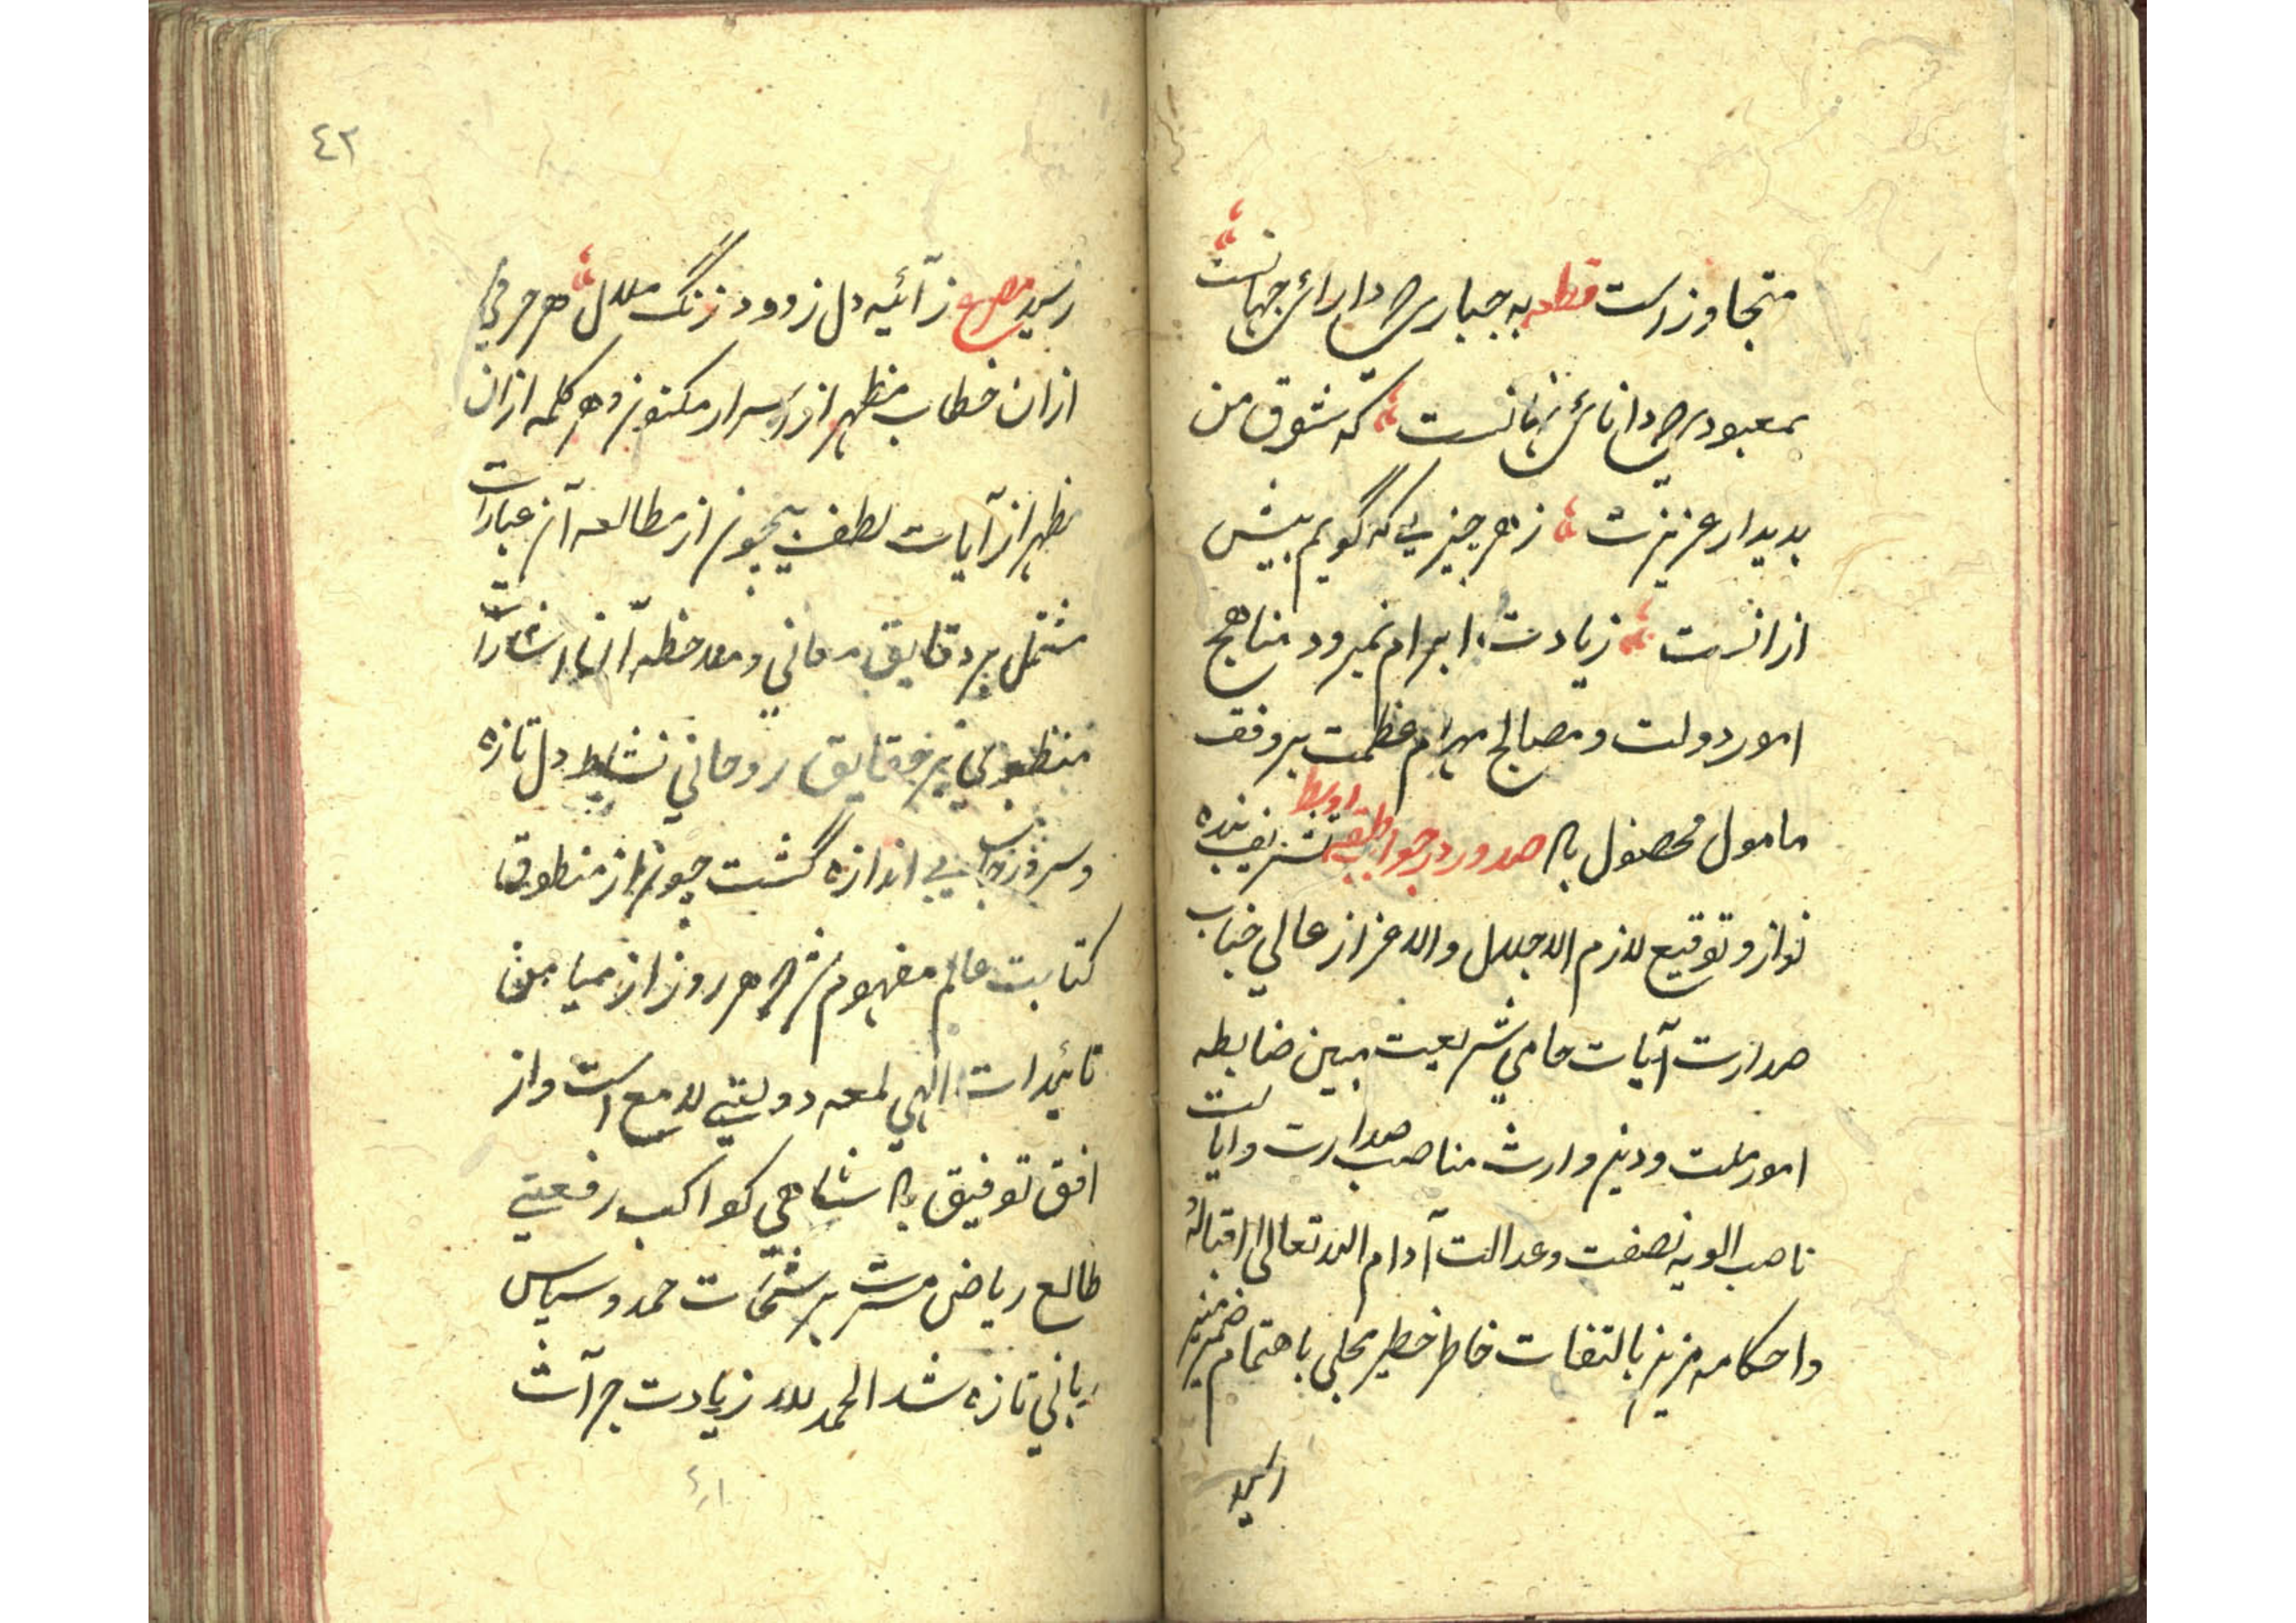 متجاوز است قطعه به جباری که دارای جهانست
بمعبودی که دانای نهانست که شوق من
بدیدار عزیزت ز هر چیزی که گویم بیش
ازانست زیادت ابرام نمیرود مناهج
امور دولت و مصالح مهام عظمت بر وفق
مامول محصول باد صدور در جواب طبقه اوسط تشریف بنده
نواز و توقیع لازم الاجلال والاعزاز عالی جناب
صدارت آیات حامی شریعت مبین ضابطه
امور ملت و دین وارث مناصب صدارت و ایالت
ناصب الویه نصفت و عدالت ادام الله تعالی اقباله
و احکامه مزین بالتفات خاطر خطیر محلی باهتمام ضمیر منیر
رسید
٤٢
رسید مصرع ز آئینه دل زدود زنگ ملال هر حرفی
ازان خطاب مظهر از اسرار مکنون و هر کلمه ازان
مظهر از آیات لطف بیچون از مطالعه آن عبارات
مشتمل بر دقایق معانی و ملاحظه آن اشارات
منطوی بر حقایق روحانی نشاط دل تازه
و سرور جان بی اندازه گشت چون از منطوق
کتابت عالم مفهوم شد که هر روز از میامن
تائیدات الهی لمعه دولتی لامع است و از
افق توفیق پادشاهی کواکب رفعتی
طالع ریاض مسرت برشحات حمد و سپاس
ربانی تازه شد الحمد لله زیادت جرآت